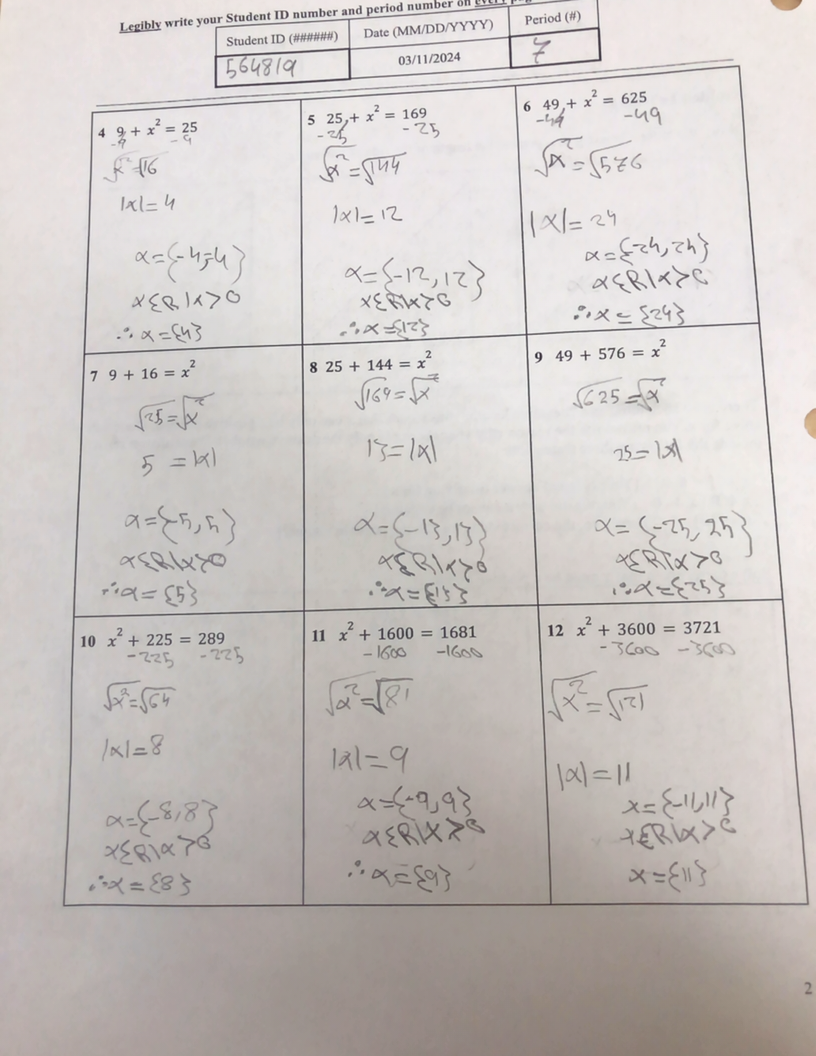 Legibly write your Student ID number and period number on every
Student ID (######) Date (MM/DD/YYYY) Period (#)
564819 03/11/2024 7
4 9 + x² = 25
-9 -9
√x² = √16
|x| = 4
x = {-4, 4}
x ∈ ℝ | x > 0
∴ x = {4}
5 25 + x² = 169
-25 -25
√x² = √144
|x| = 12
x = {-12, 12}
x ∈ ℝ | x > 0
∴ x = {12}
6 49 + x² = 625
-49 -49
√x² = √576
|x| = 24
x = {-24, 24}
x ∈ ℝ | x > 0
∴ x = {24}
7 9 + 16 = x²
√25 = √x²
5 = |x|
x = {-5, 5}
x ∈ ℝ | x > 0
∴ x = {5}
8 25 + 144 = x²
√169 = √x²
13 = |x|
x = {-13, 13}
x ∈ ℝ | x > 0
∴ x = {13}
9 49 + 576 = x²
√625 = √x²
25 = |x|
x = {-25, 25}
x ∈ ℝ | x > 0
∴ x = {25}
10 x² + 225 = 289
-225 -225
√x² = √64
|x| = 8
x = {-8, 8}
x ∈ ℝ | x > 0
∴ x = {8}
11 x² + 1600 = 1681
-1600 -1600
√x² = √81
|x| = 9
x = {-9, 9}
x ∈ ℝ | x > 0
∴ x = {9}
12 x² + 3600 = 3721
-3600 -3600
√x² = √121
|x| = 11
x = {-11, 11}
x ∈ ℝ | x > 0
x = {11}
2